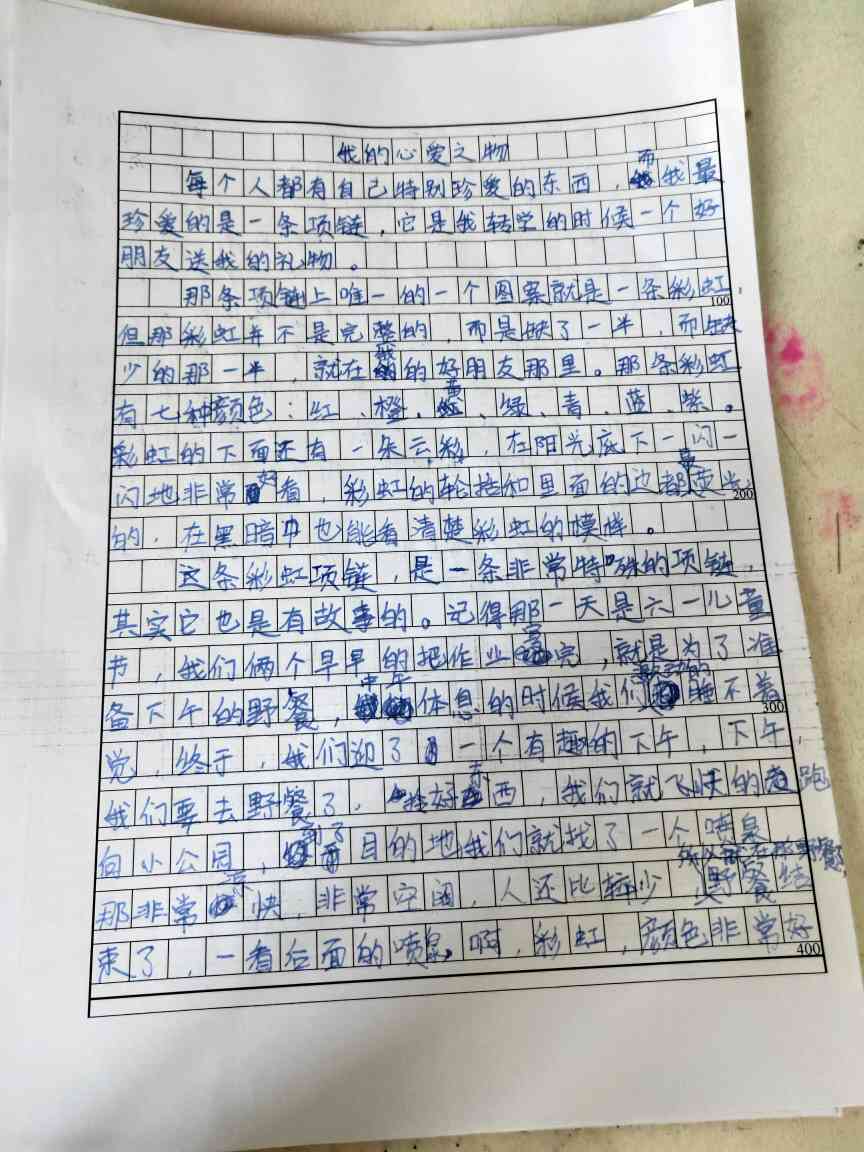 我的心爱之物
每个人都有自己特别珍爱的东西，而我最
珍爱的是一条项链，它是我转学的时候一个好
朋友送我的礼物。
那条项链上唯一的一个图案就是一条彩虹，
100
但那彩虹并不是完整的，而是缺了一半，而缺
少的那一半，就在我的好朋友那里。那条彩虹
有七种颜色：红、橙、黄、绿、青、蓝、紫。
彩虹的下面还有一朵云彩，在阳光底下一闪一
闪地非常好看，彩虹的轮挂和里面的边都是光
200
的，在黑暗中也能看清楚彩虹的模样。
这条彩虹项链，是一条非常特殊的项链，
其实它也是有故事的。记得那一天是六一儿童
节，我们俩个早早的把作业写完，就是为了准
备下午的野餐，中午体息的时候我们激动的睡不着
300
觉，终于，我们迎了一个有趣的下午，下午，
我们要去野餐了，拴好东西，我们就飞快的跑
向小公园，到了目的地我们就找了一个喷泉
那非常凉快，非常空阔，人还比较少，所以就在那野餐，野餐结
束了，一看后面的喷泉，啊，彩虹，颜色非常好
400